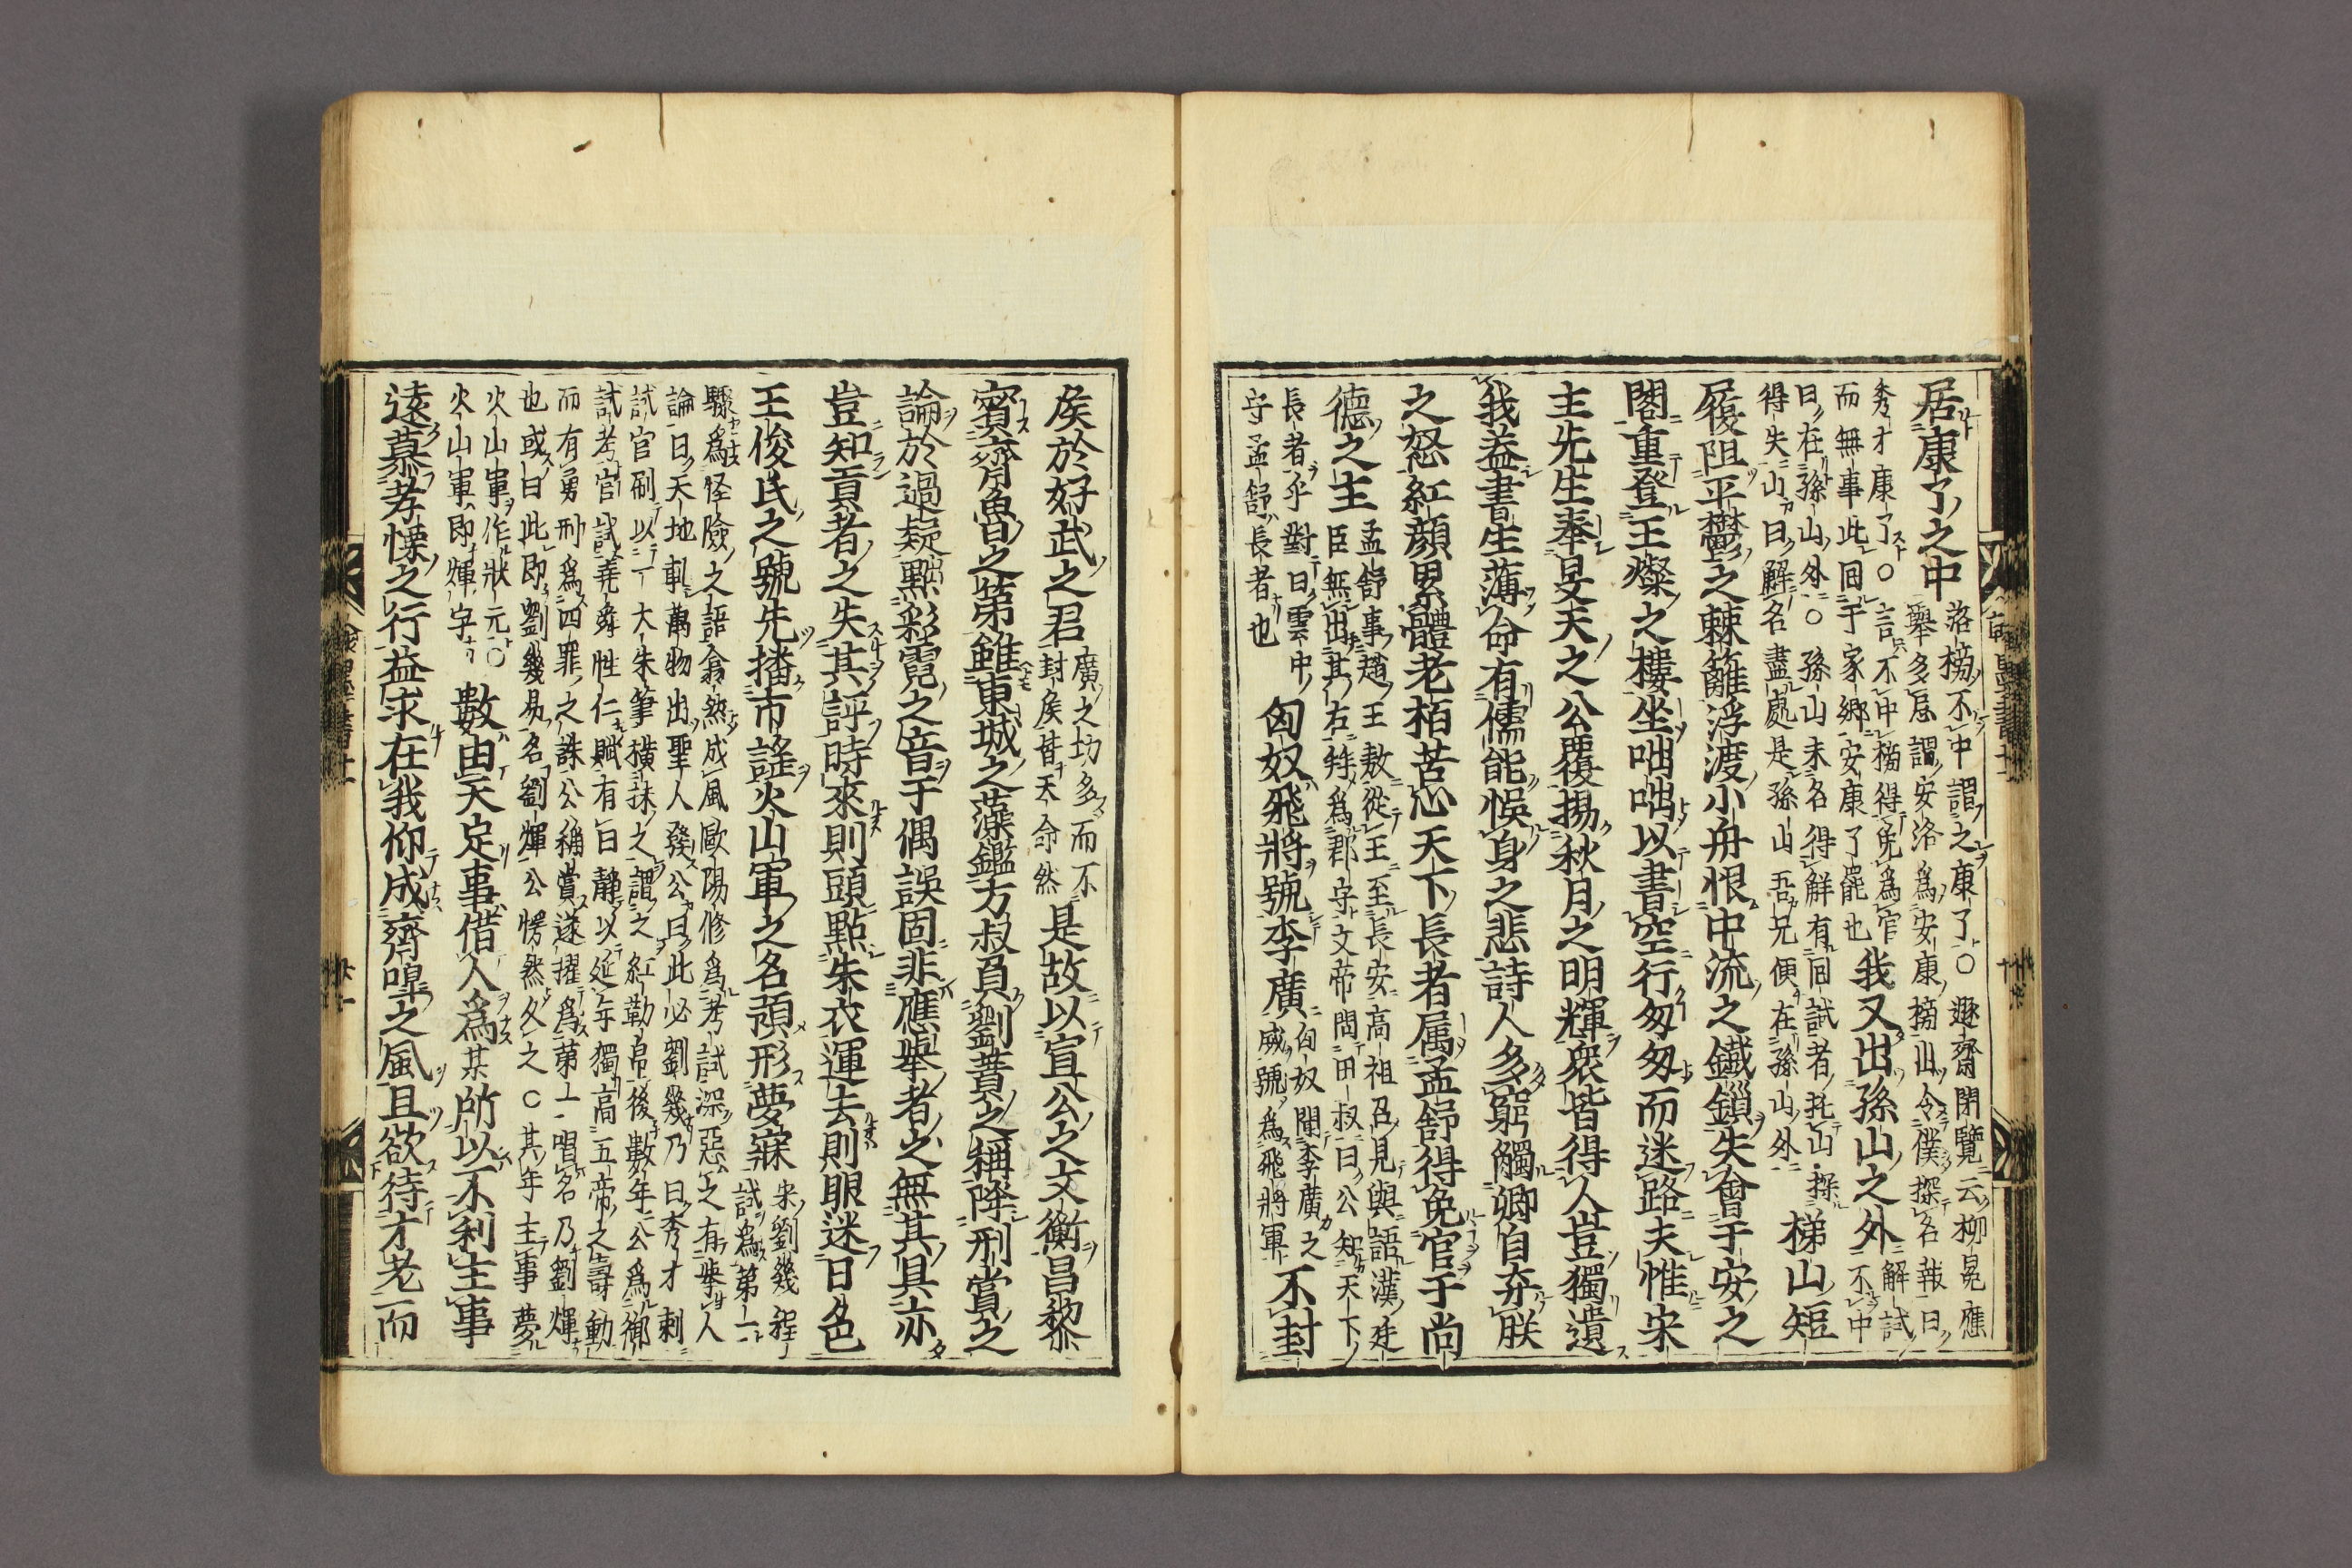 居康了之中 落榜不中謂之康了○遯齋閒覽云柳冕應
舉多忌謂安洛為安康榜出令僕探名報曰
秀才康了○言不中榜得免為官
而無事此回于家鄉安康了罷也 我又出孫山之外 解試
不中
曰在孫山外○孫山末名得解有同試者托山探
得失山曰解名盡處是孫山吾兄便在孫山外 梯山短
屐阻平欝之棘籬浮渡小舟恨中流之鐵鎖失會于安之
閣重登王燦之樓坐咄咄以書空行匆匆而迷路夫惟宋
主先生奉旻天之公覆揚秋月之明輝衆皆得人豈獨遺
我益書生薄命有儒能悞身之悲詩人多窮觸卿自弃朕
之怒紅顏累體老栢苦心天下長者属孟舒得免官于尚
德之主 孟舒事趙王敖從王至長安高祖召見與語漢廷
臣無出其右拜為郡守文帝問田叔曰公知天下
長者乎對曰雲中
守孟舒長者也 匈奴飛將號李廣 匈奴聞李廣之
威號為飛將軍 不封
矦於好武之君 廣之坊多而不
封矦昔天命然 是故以宣公之文衡昌黎
賓齊魯之第雖東城之藻鑑方叔負劉蕡之稱降刑賞之
論於過疑點彩霓之音于偶誤固非應舉者之無其具亦
豈知貢者之失其評時來則頭點朱衣運去則眼迷日色
王俊民之號先播市謠火山軍之名預形夢寐 宋劉幾程
試為第一
驟為怪險之語翕然成風歐陽修為考試深惡之有舉人
論曰天地軋萬物出聖人發公曰此必劉幾乃曰秀才剌
試官刷以一大朱筆橫抹之謂之紅勒帛後數年公為御
試考官試堯舜性仁賦有曰靜以延年獨高五帝之壽動
而有勇刑為四罪之誅公稱賞遂擢為第一唱名乃劉煇
也或曰此即劉幾易名劉煇公愕然久之○其年主事夢
火山軍作狀元○
火山軍即煇字 數由天定事借人為某所以不利主事
遠慕孝慄之行益求在我仰成齊嘷之風且欲待才老而